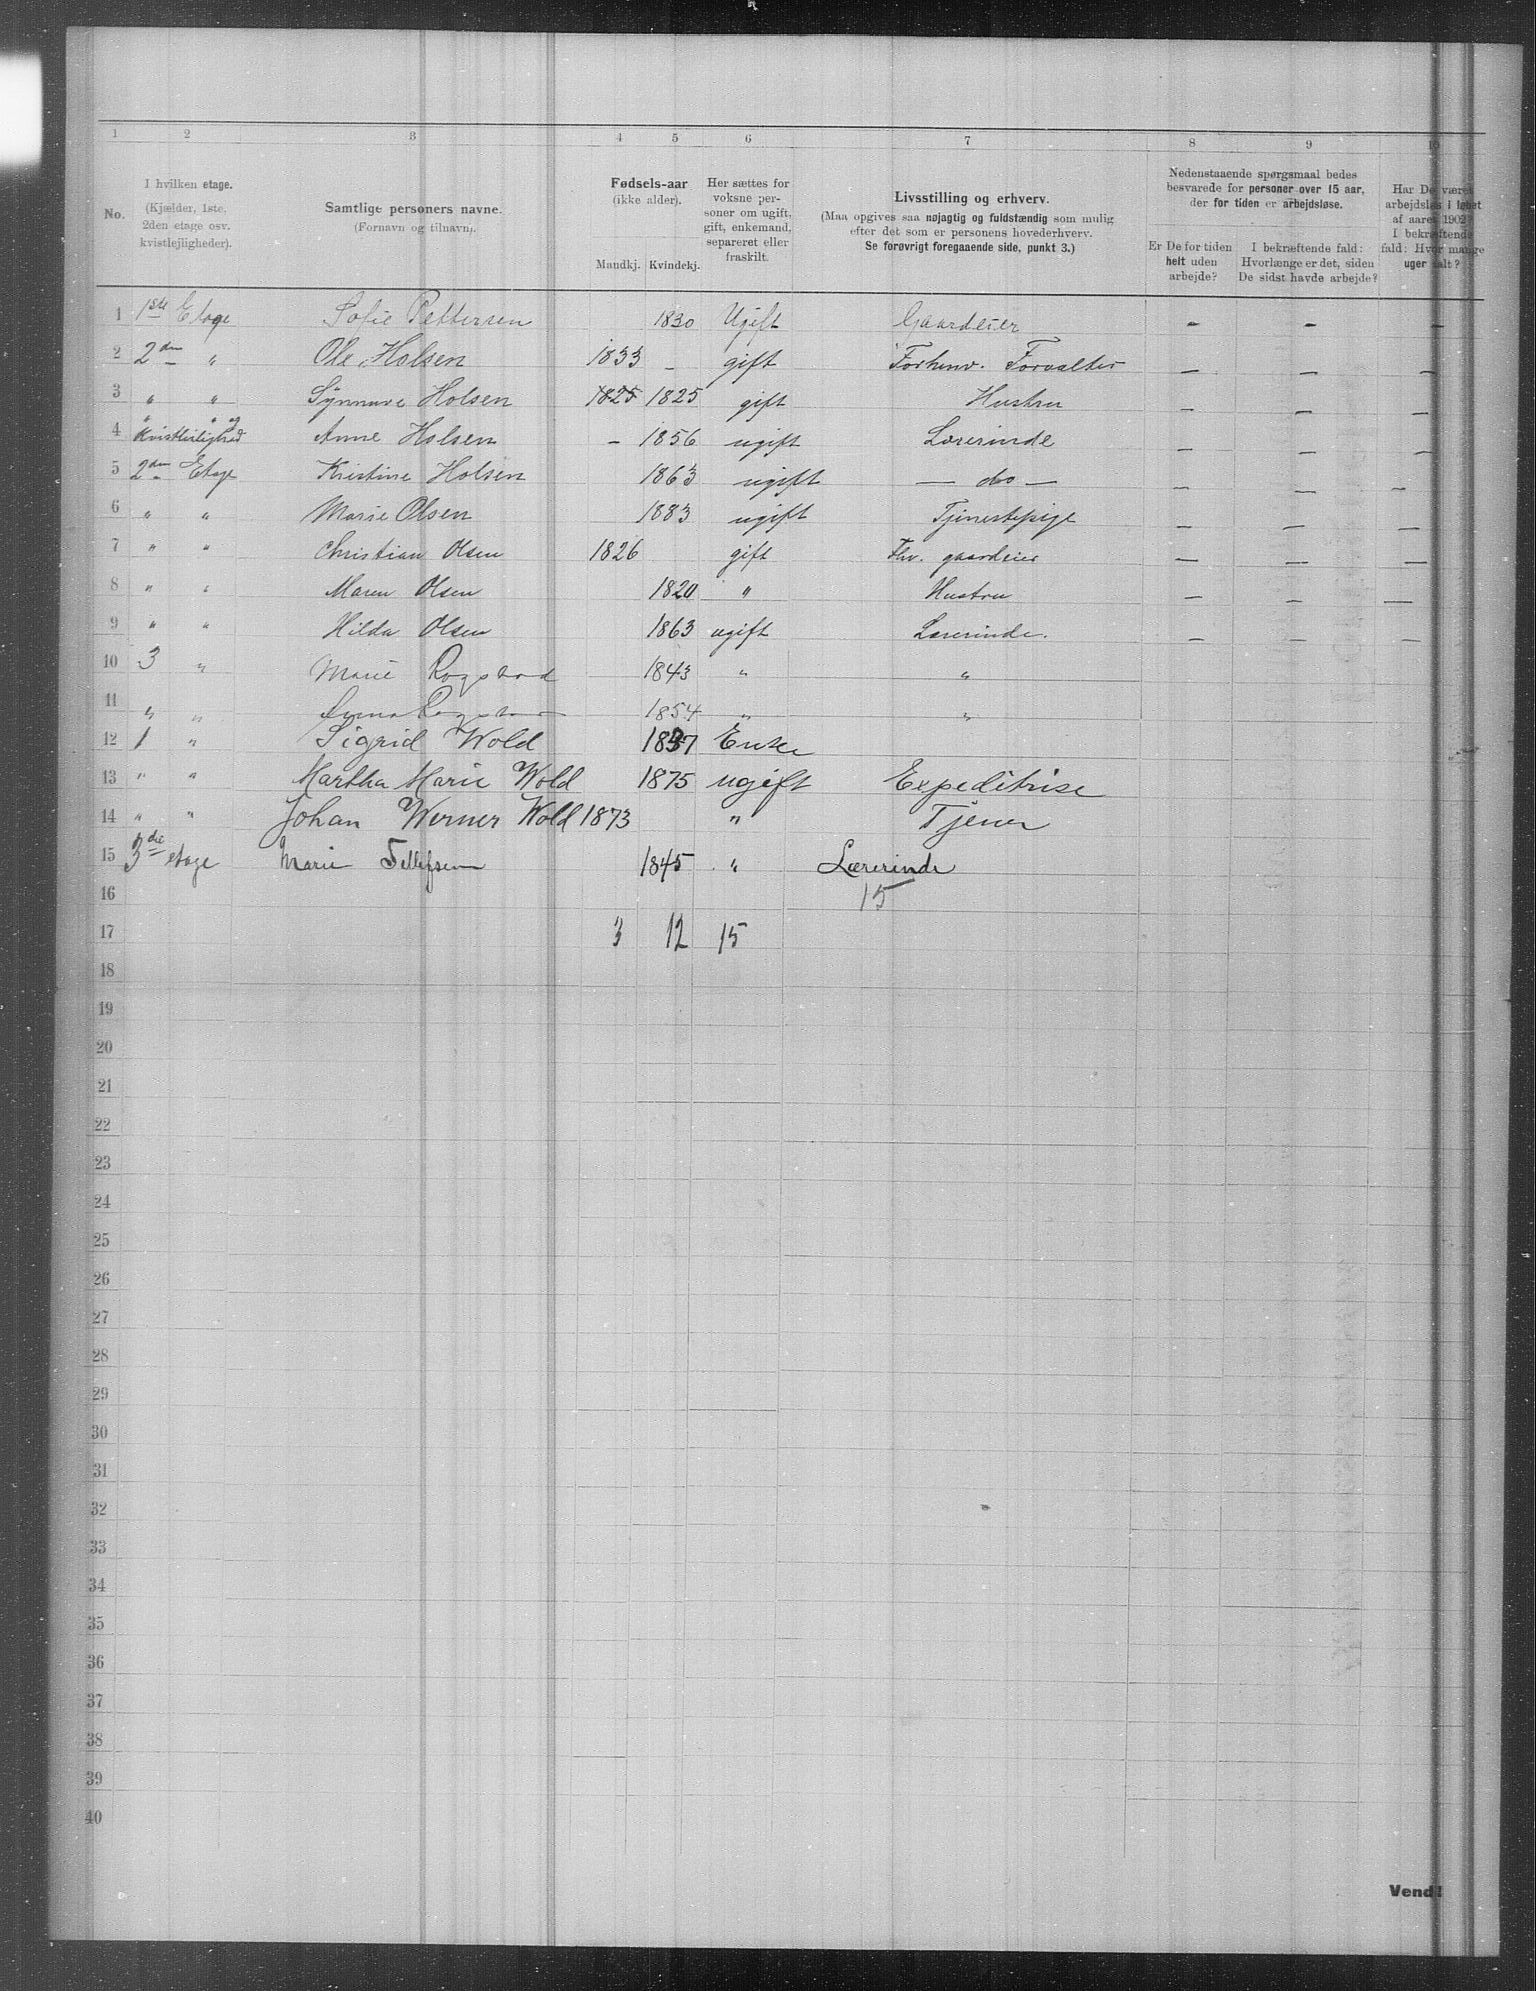 1 2 3 4 5 6 7 8 9 10
No.
I hvilken etage.
(Kjælder, 1ste,
2den etage osv.
kvistlejligheder).
Samtlige personers navne.
(Fornavn og tilnavn).
Fødsels-aar
(ikke alder).
Mandkj. Kvindekj.
Her sættes for
voksne per-
soner om ugift,
gift, enkemand,
separeret eller
fraskilt.
Livsstilling og erhverv.
(Maa opgives saa nøjagtig og fuldstændig som mulig
efter det som er personens hovederhverv.
Se forøvrigt foregaaende side, punkt 3.)
Nedenstaaende spørgsmaal bedes
besvarede for personer over 15 aar,
der for tiden er arbejdsløse.
Er De for tiden
helt uden
arbejde?
I bekræftende fald:
Hvorlænge er det, siden
De sidst havde arbejde?
Har De været
arbejdsløs i løbet
af aaret 1902?
I bekræftende
fald: Hvor mange
uger ialt?
1 1ste Etage Sofie Pettersen 1830 Ugift Gaardeier - - -
2 2den " Ole Holsen 1833 - gift Forhenv. Forvalter - - -
3 " " Synnøve Holsen 1825 1825 gift Hustru - - -
" " og
4 Kvistleilighed Anne Holsen - 1856 ugift Lærerinde - - -
5 2den Etage Kristine Holsen 1863 ugift - do - - - -
6 " " Marie Olsen 1883 ugift Tjenestepige - - -
7 " " Christian Olsen 1826 gift Fhv. gaardeier - - -
8 " " Maren Olsen 1820 " Hustru - - -
9 " " Hilda Olsen 1863 ugift Lærerinde. - - -
10 3 " Marie Rogstad 1843 " "
11 " " Anna Rogstad 1854 " "
12 1 " Sigrid Wold 1837 Enke
13 " " Martha Marie Wold 1875 ugift Expeditrise
14 " " Johan Werner Wold 1873 " Tjener
15 3die etage Marie Tellefsen 1845 " Lærerinde
16 15
17 3 12 15
18
19
20
21
22
23
24
25
26
27
28
29
30
31
32
33
34
35
36
37
38
39
40
Vend!